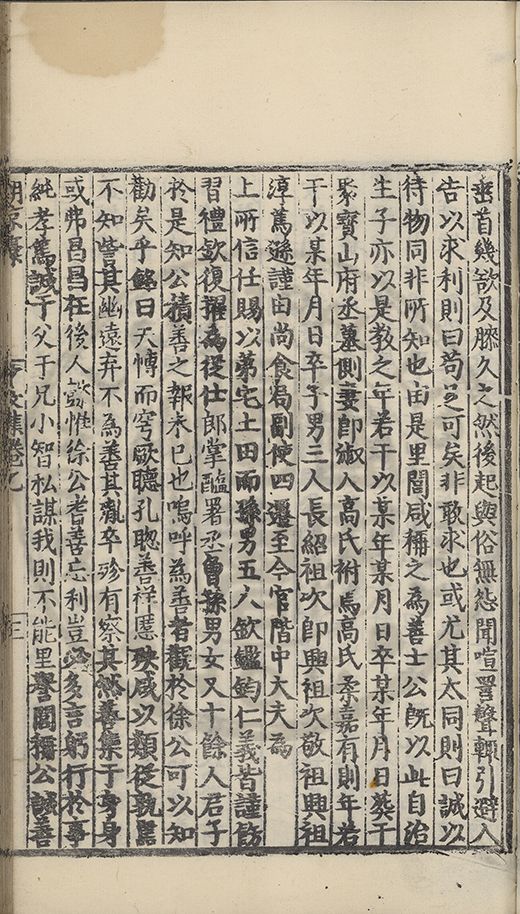 垂首幾欲及膝久之然後起與俗無怨聞喧詈聲輒引避入
告以求利則曰苟足可矣非敢求也或尤其太同則曰誠以
待物同非所知也由是里閭咸稱之為善士公旣以此自治
生子亦以是教之年若干以某年某月日卒某年月日葬于
聚寶山府丞墓側妻即淑人高氏祔焉高氏柔嘉有則年若
干以某年月日卒子男三人長紹祖次即興祖次敬祖興祖
淳篤遜謹由尚食局副使四遷至今官階中大夫為
上所信任賜以第宅土田而孫男五人欽鑑鈞仁義皆謹飭
習禮欽復擢為從仕郎掌醢署丞曾孫男女又十餘人君子
於是知公積善之報未已也嗚呼為善者觀於徐公可以知
勸矣乎銘曰天愽而穹歐聽孔聦善祥慝殃咸以類從孰罵
不知訾其幽遠弃不為善其胤卒殄有察其然善集于身身
或弗昌昌在後人欻惟徐公耆善忘利豈必多言躬行於事
純孝篤誠于父于兄小智私謀我則不能里譽閭稱公誠善
卷九
三